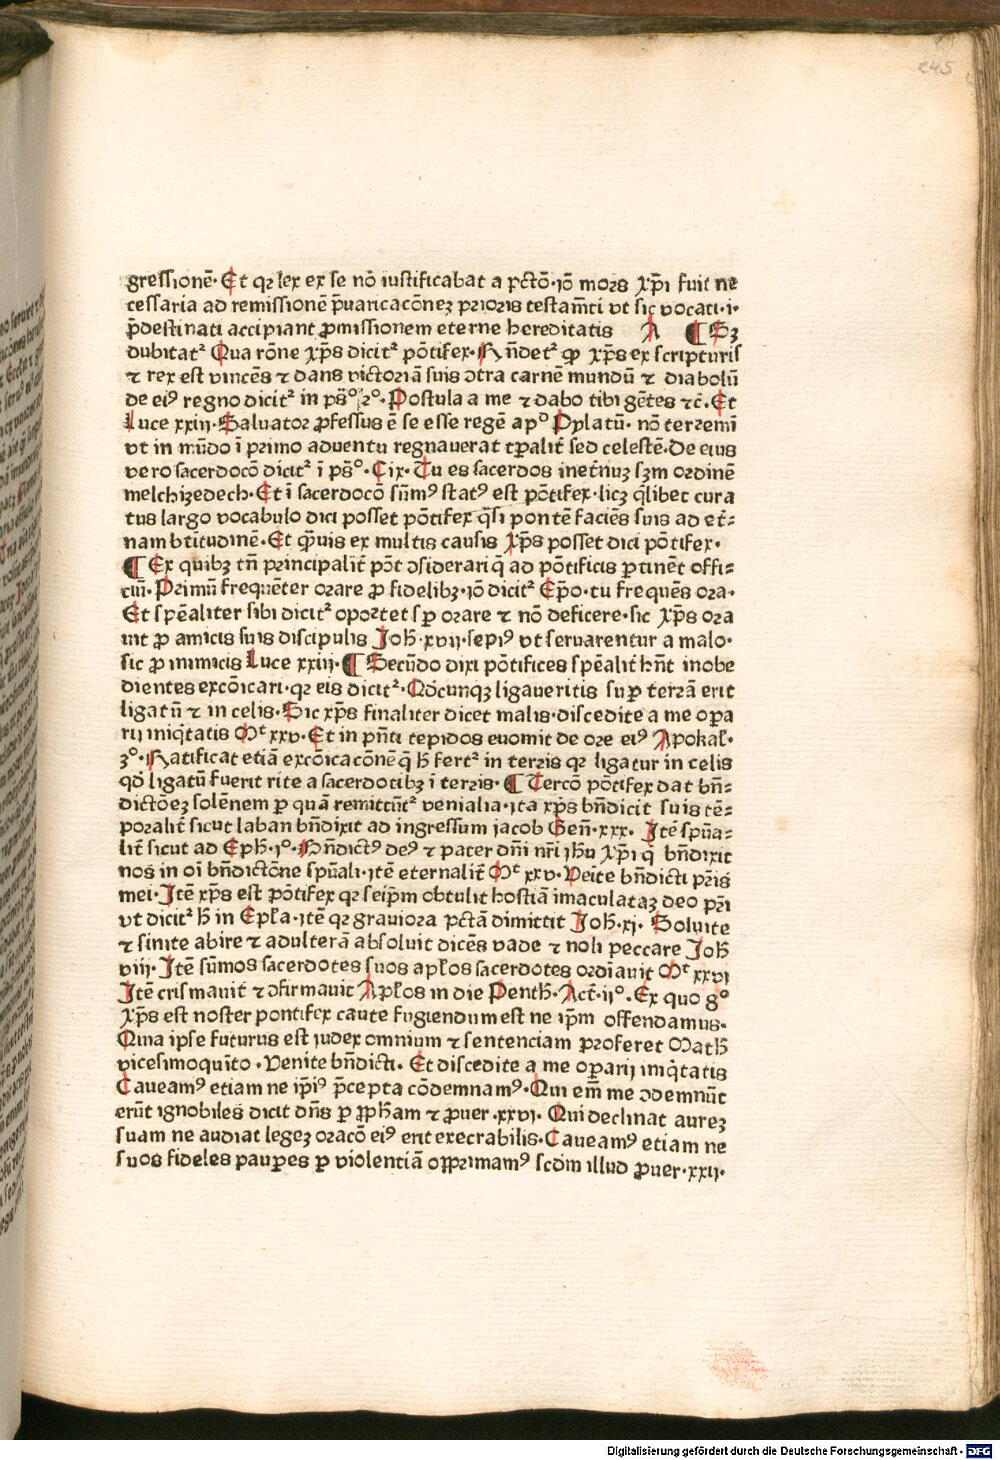 245
gressionē· Et qꝛ lex ex se nō iustificabat a pctō· iō moꝛs xp̄i fuit ne
cessaria ad remissionē p̄uaricacōneꝫ pꝛioꝛis testam̄ti vt sic vocati· i·
p̄destinati accipiant ꝓmissionem eterne hereditatis A ¶ Sꝫ
dubitat² Qua rōne xp̄s dicit² pōtifex· Rn̄det² ꝙ xp̄s ex scripturis
⁊ rex est vincēs ⁊ dans victoꝛiā suis ↄtra carnē mundū ⁊ diabolū
de ei⁹ regno dicit² in ps̄° 2°· Postula a me ⁊ dabo tibi gētes ⁊c̄· Et
Luce xxiij· Saluatoꝛ ꝓfessus ē se esse regē ap° Pylatū· nō terꝛemī
vt in mūdo ī pꝛimo aduentu regnauerat tꝑalit̄ sed celestē· De eius
vero sacerdocō dicit² ī ps̄°· Cix· Tu es sacerdos inet̄nuꝫ sꝫm oꝛdinē
melchizedech· Et ī sacerdocō sūm⁹ stat⁹ est pōtifex· licꝫ q̄libet cura
tus largo vocabulo dici posset pōtifex q̄si pontē faciēs suis ad et̄⸗
nam btītudinē· Et q̄uis ex multis causis xp̄s posset dici pōtifex·
¶ Ex quibꝫ tn̄ principalit̄ pōt ↄsiderari q̄ ad pōtificis ꝑtinēt offi⸗
ciū· Pꝛimū frequēter oꝛare ꝓ fidelibꝫ· iō dicit² Ep̄o· tu frequēs oꝛa·
Et spēaliter sibi dicit² opoꝛtet sꝑ oꝛare ⁊ nō deficere· sic xp̄s oꝛa
uit ꝓ amicis suis discipulis Joh̄· xvij· sepi⁹ vt seruarentur a malo·
sic ꝓ inimicis Luce xxiij· ¶ Secūdo dixi pōtifices spēalit̄ hn̄t inobe
dientes excōicari· qꝛ eis dicit²· Qd̄cunqꝫ ligaueritis suꝑ terꝛā erit
ligatū ⁊ in celis· Sic xp̄s finaliter dicet malis· discedite a me oꝑa
rij iniq̄tatis Mt xxv· Et in pn̄ti tepidos euomit de oꝛe ei⁹ Apokal̄·
3°· Ratificat etiā excōicacōnē q̄ h̄ fert² in terꝛis qꝛ ligatur in celis
qd̄ ligatū fuerit rite a sacerdotibꝫ ī terꝛis· ¶ Tercō pōtifex dat bn̄⸗
dictōeꝫ solēnem ꝑ quā remittūt² venialia· ita xp̄s bn̄dicit suis tē⸗
poꝛalit̄ sicut laban bn̄dixit ad ingressum jacob Gen̄· xxx· Jtē spūa⸗
lit̄ sicut ad Eph̄· j°· Bn̄dict⁹ de⁹ ⁊ pater dn̄i nr̄i ih̄u xp̄i q̄ bn̄dixit
nos in oī bn̄dictōne spūali· jtē eternalit̄ Mt xxv· Veīte bn̄dicti pr̄is
mei· Jtē xp̄s est pōtifex qꝛ seip̄m obtulit hostiā imaculataꝫ deo pr̄i
vt dicit² h̄ in Epl̄a· jtē qꝛ grauioꝛa pctā dimittit Joh̄· xj· Soluite
⁊ sinite abire ⁊ adulterā absoluit dicēs vade ⁊ noli peccare Joh̄
viij· Jtē sūmos sacerdotes suos apl̄os sacerdotes oꝛdīauit Mt xxvj
Jtē crismauit ⁊ ↄfirmauit Apl̄os in die Penth̄· Act̄· ij°· Ex quo g°
xp̄s est noster pontifex caute fugiendum est ne ip̄m offendamus·
Quia ipse futurus est iudex omnium ⁊ sentenciam pꝛoferet Math̄
vicesimoquīto · Venite bn̄dicti· Et discedite a me oꝑarij iniq̄tatis
Caueam⁹ etiam ne ip̄i⁹ p̄cepta cōdemnam⁹· Qui em̄ me ↄdemnūt
erūt ignobiles dicit dn̄s ꝑ ꝓph̄am ⁊ ꝓuer· xxvj· Qui declinat aureꝫ
suam ne audiat legeꝫ oꝛacō ei⁹ erit execrabilis· Caueam⁹ etiam ne
suos fideles pauꝑes ꝑ violentiā oppꝛimam⁹ scd̄m illud ꝓuer· xxij·
Digitalisierung gefördert durch die Deutsche Forschungsgemeinschaft · DFG